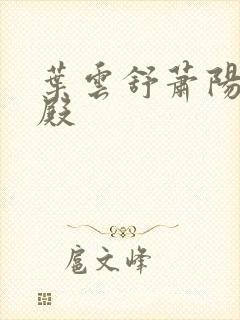 葉雲舒蕭陽
殿
扈文峰